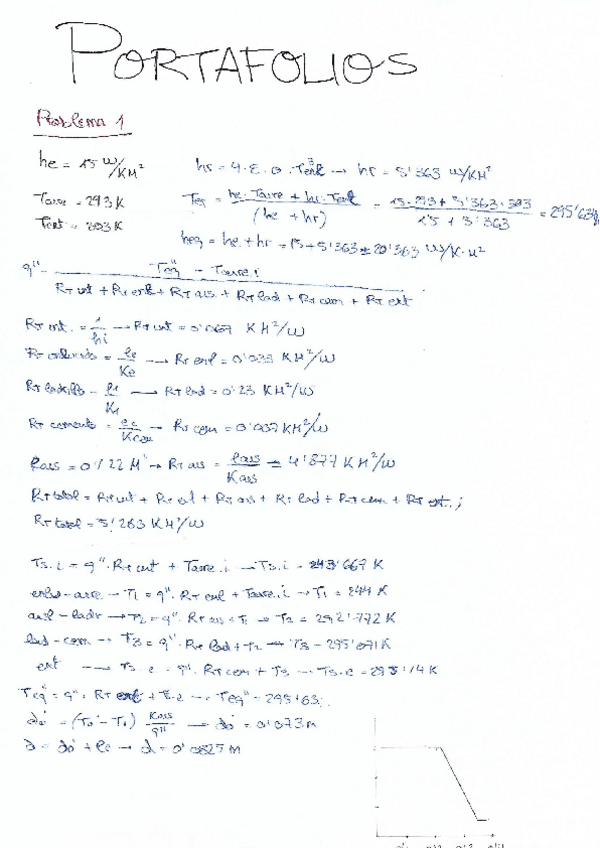 PORTAFOLIOS
Problema 1
he = 15 W/KM²
hr = 4·ε·σ·Text³ → hr = 5'363 W/KM²
Taire = 293 K
Teq = he·Taire + hr·Text / (he + hr) = 15·293 + 5'363·303 / 15 + 5'363 = 295'634
Text = 303 K
heq = he + hr = 15 + 5'363 = 20'363 W/K·M²
q'' = Teq - Taire,i / RT int + RT enl + RT ais + RT lad + RT cem + RT ext
RT int. = 1/hi → RT int = 0'067 KM²/W
RT enlucido = le/Ke → RT enl = 0'033 KM²/W
RT ladrillo = l1/K1 → RT lad = 0'23 KM²/W
RT cemento = ec/Kcem → RT cem = 0'007 KM²/W
Pais = 0'122 M → RT ais = eais/Kais = 4'877 KM²/W
RT total = RT int + RT enl + RT ais + RT lad + RT cem + RT ext.;
RT total = 5'263 KM²/W
Ts.i = q''·RT int + Taire.i → Ts.i = 243'667 K
enlu-aire → T1 = q''·RT enl + Taire.i → T1 = 244 K
aisl-ladr → T2 = q''·RT ais + T1 → T2 = 292'772 K
lad-cem → T3 = q''·RT lad + T2 → T3 = 295'071 K
ext → Ts.e = q''·RT cem + T3 → Ts.e = 295'14 K
Teq = q''·RT ext + Ts.e → Teq = 295'63
do' = (To - T1) Kais/q'' → do' = 0'073 m
d = do' + le → d = 0'0825 m